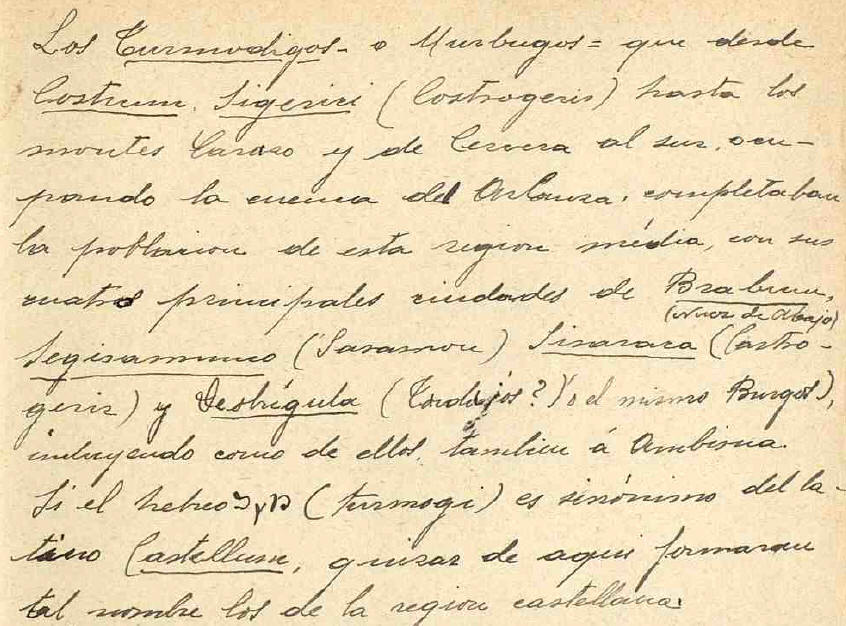 Los Turmodigos - o Murbugos = que desde
Castrum Sigerici (Castrogeris) hasta los
montes Carazo y de Cervera al sur, ocu-
pando la cuenca del Arlanza, completaban
la poblacion de esta region média, con sus
cuatro principales ciudades de Brabum,
(Nuez de Abajo)
Segisamunco (Sasamon) Sisaraca (Castro-
geriz) y Deobrígula (Tordajós? Yo el mismo Burgos),
incluyendo como de ellos, tambien á Ambisna.
Si el hebreo (turmogi) es sinónimo del la-
tino Castellum, quizas de aqui formaran
tal nombre los de la region castellana: